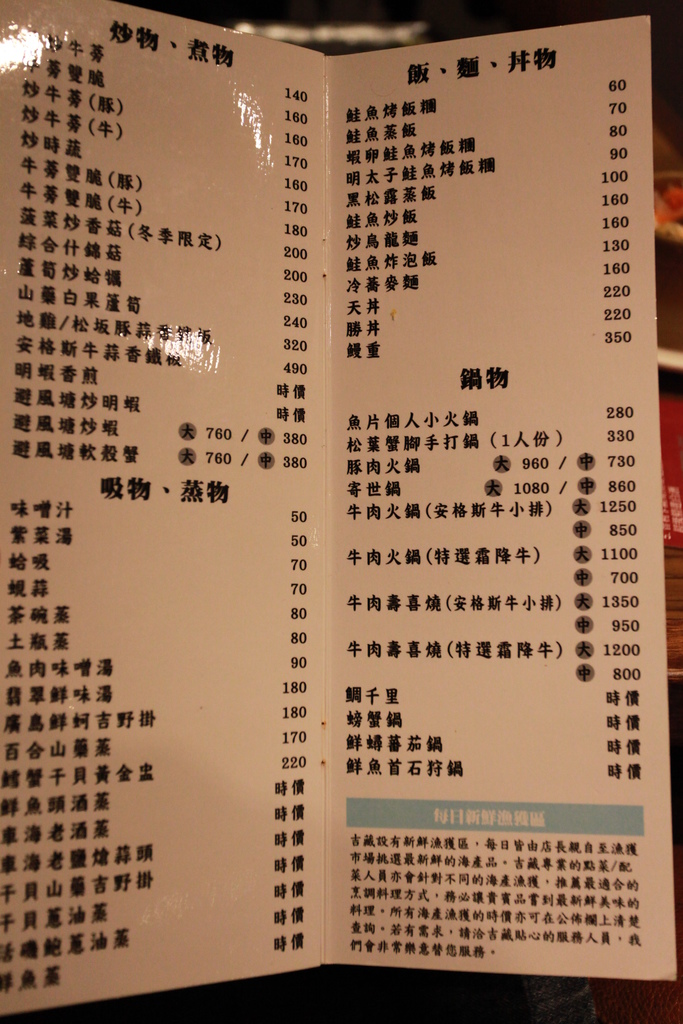 炒物、煮物
炒牛蒡 140
牛蒡雙脆 160
炒牛蒡(豚) 160
炒牛蒡(牛) 170
炒時蔬 160
牛蒡雙脆(豚) 170
牛蒡雙脆(牛) 180
菠菜炒香菇(冬季限定) 200
綜合什錦菇 200
蘆筍炒蛤蠣 230
山藥白果蘆筍 240
地雞/松坂豚蒜香鐵板 320
安格斯牛蒜香鐵板 490
明蝦香煎 時價
避風塘炒明蝦 時價
避風塘炒蝦 大 760 / 中 380
避風塘軟殼蟹 大 760 / 中 380
吸物、蒸物
味噌汁 50
紫菜湯 50
蛤吸 70
蜆蒜 70
茶碗蒸 80
土瓶蒸 80
魚肉味噌湯 90
翡翠鮮味湯 180
廣島鮮蚵吉野掛 180
百合山藥蒸 170
鱈蟹干貝黃金盅 220
鮮魚頭酒蒸 時價
車海老酒蒸 時價
車海老鹽焗蒜頭 時價
干貝山藥吉野掛 時價
干貝蔥油蒸 時價
活磯鮑蔥油蒸 時價
鮮魚蒸 時價
飯、麵、丼物
鮭魚烤飯糰 60
鮭魚蒸飯 70
蝦卵鮭魚烤飯糰 80
明太子鮭魚烤飯糰 90
黑松露蒸飯 100
鮭魚炒飯 160
炒烏龍麵 160
鮭魚炸泡飯 130
冷蕎麥麵 160
天丼 220
勝丼 220
鰻重 350
鍋物
魚片個人小火鍋 280
松葉蟹腳手打鍋 (1人份) 330
豚肉火鍋 大 960 / 中 730
寄世鍋 大 1080 / 中 860
牛肉火鍋(安格斯牛小排) 大 1250
中 850
牛肉火鍋(特選霜降牛) 大 1100
中 700
牛肉壽喜燒(安格斯牛小排) 大 1350
中 950
牛肉壽喜燒(特選霜降牛) 大 1200
中 800
鯛千里 時價
螃蟹鍋 時價
鮮蟳蕃茄鍋 時價
鮮魚首石狩鍋 時價
每日新鮮漁獲區
吉藏設有新鮮漁獲區，每日皆由店長親自至漁獲
市場挑選最新鮮的海產品。吉藏專業的點菜/配
菜人員亦會針對不同的海產漁獲，推薦最適合的
烹調料理方式，務必讓貴賓品嘗到最新鮮美味的
料理。所有海產漁獲的時價亦可在公佈欄上清楚
查詢。若有需求，請洽吉藏貼心的服務人員，我
們會非常樂意替您服務。